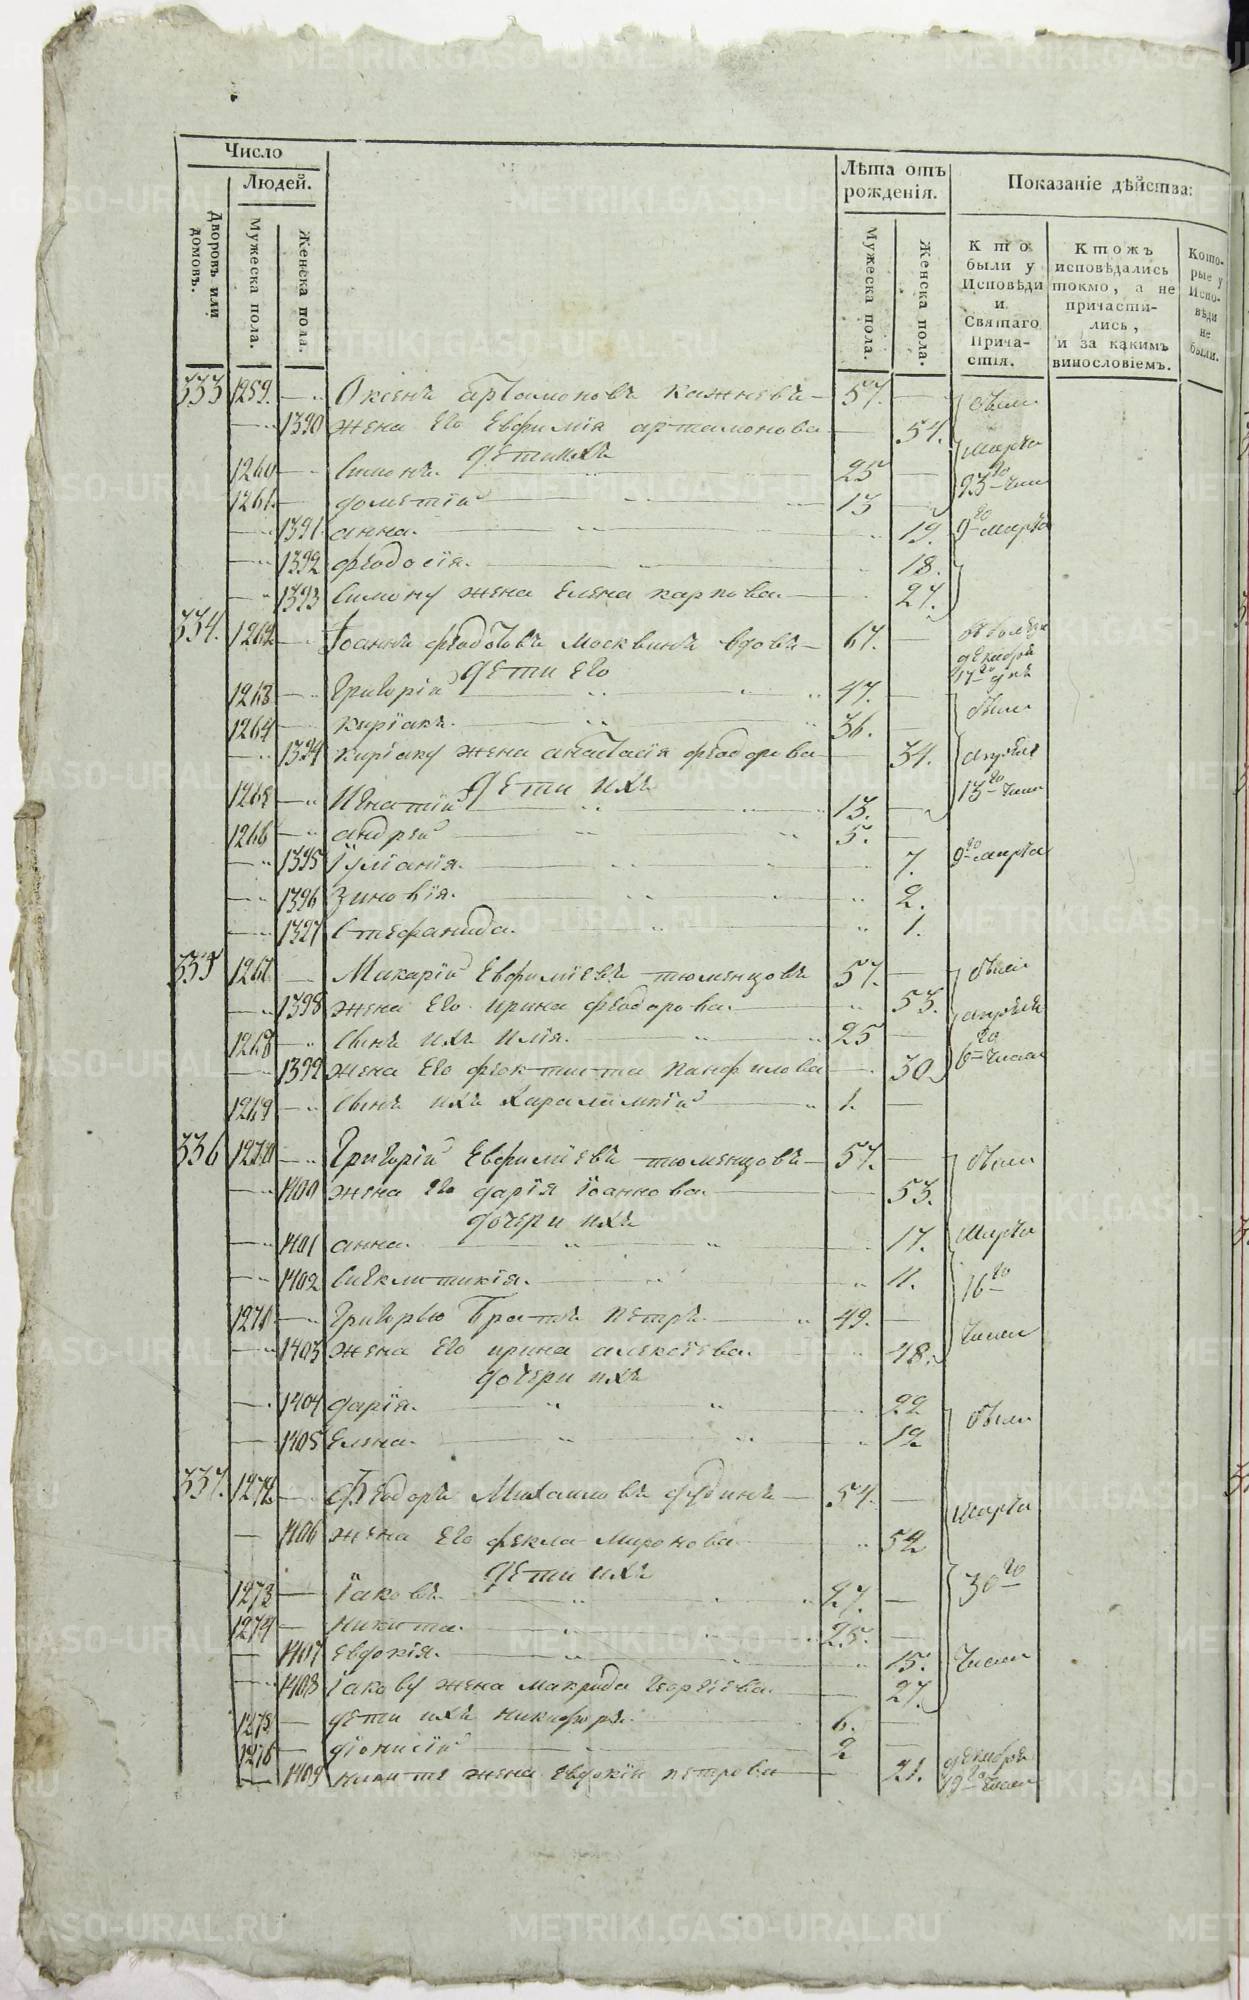 Число
Людей.
Дворовъ или домовъ.
Мужеска пола.
Женска пола.
Лѣта отъ рожденія.
Мужеска пола.
Женска пола.
Показаніе дѣйства:
Кто были у Исповѣди и Святаго Причастія.
Ктожъ исповѣдались токмо, а не причастились, и за какимъ винословіемъ.
Которые у Исповѣди не были.
333 1259. Оксенъ Артамоновъ 57. были
1390 жена его Евфимія артамонова 54. марта
дети ихъ
1260 Симонъ 25 23го числа
1261 дометій 13
1391 анна. 19. 9го марта
1392 феодосія. 18.
1393 Симону жена Елена карпова 27.
334. 1262 Іоаннъ Москвинъ вдовъ 67. декабря 17го дня
дети его
1263 григорій 47.
1264 киріакъ. 36. были
1394 киріаку жена анастасія феодорова 34. апреля
дети ихъ
1265 Игнатій 13. 13го числа
1266 андрей 5.
1395 Іуліанія. 7. 9го марта
1396 Зиновія. 2.
1397 Стефанида. 1.
335 1267 Макарій Евфиміевъ тюменцовъ 57. были
1398 жена его ирина феодорова 53. апреля
1268 сынъ ихъ илія. 25 6го числа
1399 жена его феоктиста панфилова 30
1269 сынъ ихъ Харалампій 1.
336 1270 Григорій Евфиміевъ тюменцовъ 57. были
1400 жена его дарія іоаннова 53.
дочери ихъ
1401 анна. 17. марта
1402 Сигклитикія. 11. 16го
1271 Григорью братъ петръ 49. числа
1403 жена его ирина алексеева 48.
дочери ихъ
1404 дарія. 22 были
1405 Елена. 19
337. 1272 Феодоръ Михаиловъ 54. марта
1406 жена его фекла миронова 52
дети ихъ
1273 Іаковъ 27. 30го
1274 никита. 25.
1407 Евдокія. 15. числа
1408 Іакову жена макрида георгіева 27.
1275 дети ихъ никифоръ 6.
1276 діонисій 2 декабря
1409 никите жена евдокія петрова 21. 19го числа
METRIKI.GASO-URAL.RU